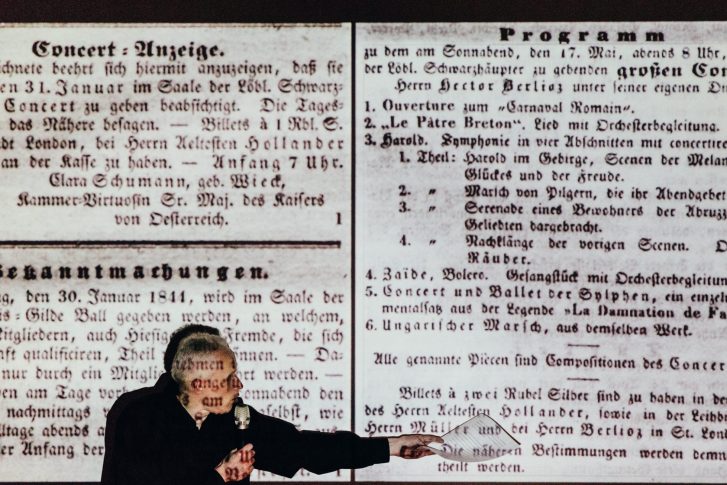 Concert-Anzeige.
chnete beehrt sich hiermit anzuzeigen, daß sie
en 31. Januar im Saale der Löbl. Schwarz-
Concert zu geben beabsichtigt. Die Tages-
das Nähere besagen. — Billets à 1 Rbl. S.
dt London, bei Herrn Aeltesten Hollander
an der Kasse zu haben. — Anfang 7 Uhr.
Clara Schumann, geb. Wieck,
Kammer-Virtuosin Sr. Maj. des Kaisers
von Oesterreich. 1
Bekanntmachungen.
g, den 30. Januar 1844, wird im Saale der
is-Gilde Ball gegeben werden, an welchem,
Mitgliedern, auch Hiesige Fremde, die sich
aft qualificiren, Theil nehmen können. — Da-
nur durch ein Mitglied werden. —
en am Tage vorh Sonnabend den
nachmittags selbst, wie
lltage abends a
er Anfang der
Programm
zu dem am Sonnabend, den 17. Mai, abends 8 Uhr,
der Löbl. Schwarzhäupter zu gebenden großen Co
Herrn Hector Berlioz unter seiner eigenen Di
1. Ouverture zum „Carnaval Romain“.
2. „Le Pâtre Breton“. Lied mit Orchesterbegleitung.
3. Harold. Symphonie in vier Abschnitten mit concertire
1. Theil: Harold im Gebirge, Scenen der Melan
Glückes und der Freude.
2. „ Marsch von Pilgern, die ihr Abendgebet
3. „ Serenade eines Bewohners der Abruzz
Geliebten dargebracht.
4. „ Nachklänge der vorigen Scenen. O
Räuber.
4. Zaïde, Bolero. Gesangstück mit Orchesterbegleitung
5. Concert und Ballet der Sylphen, ein einzel
mentalsatz aus der Legende »La Damnation de Fa
6. Ungarischer Marsch, aus demselben Werk.
Alle genannte Piècen sind Compositionen des Concert
Billets à zwei Rubel Silber sind zu haben in de
des Herrn Aeltesten Hollander, sowie in der Leihb
des Herrn Müller und bei Herrn Berlioz in St. Lon
Die näheren Bestimmungen werden demn
theilt werden.